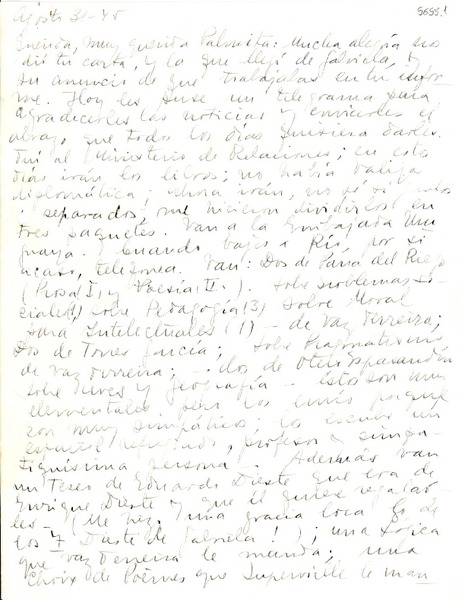 Agosto 31-45
5695.1
Querida, muy querida Palmita: Mucha alegría nos
dió tu carta, y la que llegó de Gabriela, y
su anuncio de que trabajabas en tu infor-
me. Hoy les puse un telegrama para
agradecerles las noticias y enviarles el
abrazo que todos los días quisiera darles.
Fuí al Ministerio de Relaciones; en estos
días irán los libros; no había valija
diplomática; ahora irán, no sé si
separados, me hicieron dividirlos en
tres paquetes. Van a la Embajada Uru-
guaya. Cuando bajes a Río, por si
acaso, telefonea. Van: Dos de Parra del Riego
(Prosa I, y Poesía II.). Sobre problemas so-
ciales, sobre Pedagogía (3) Sobre Moral
para Intelectuales (1) - de Vaz Ferreira;
Dos de Torres García; Sobre Pragmatismo
de Vaz Ferreira; - dos de Otero
sobre y Geografía - Estos son muy
elementales. Pero los envío porque
son muy simpáticos; los escribe un
español refugiado, profesor y simpa-
tiquísima persona. Además van
un Teseo de Eduardo Dieste que era de
Enrique Dieste y que él quiere regalar-
les - (Me hizo una gracia loca lo de
los 7 Dieste de Gabriela!); una Lógica
que Vaz Ferreira le manda; una
Choix de Poèmes que Supervielle le man-